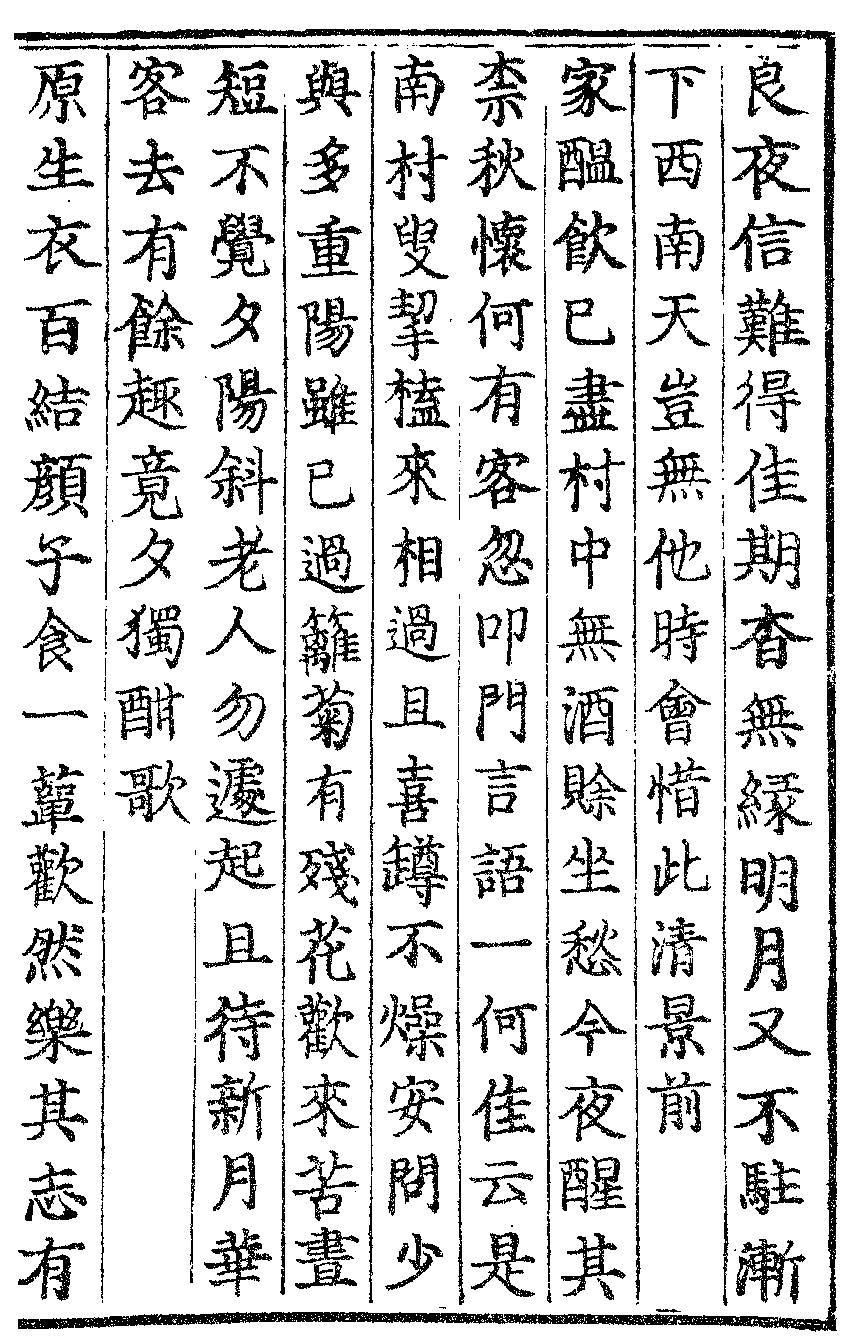 良夜信難得佳期杳無緑明月又不駐漸
下西南天豈無他時會惜此清景前
家醞飲已盡村中無酒賖坐愁今夜醒其
柰秋懷何有客忽叩門言語一何佳云是
南村叟挈榼來相過且喜罇不燥安問少
與多重陽雖已過籬菊有殘花歡來苦晝
短不覺夕陽斜老人勿遽起且待新月華
客去有餘趣竟夕獨酣歌
原生衣百結顔子食一簞歡然樂其志有